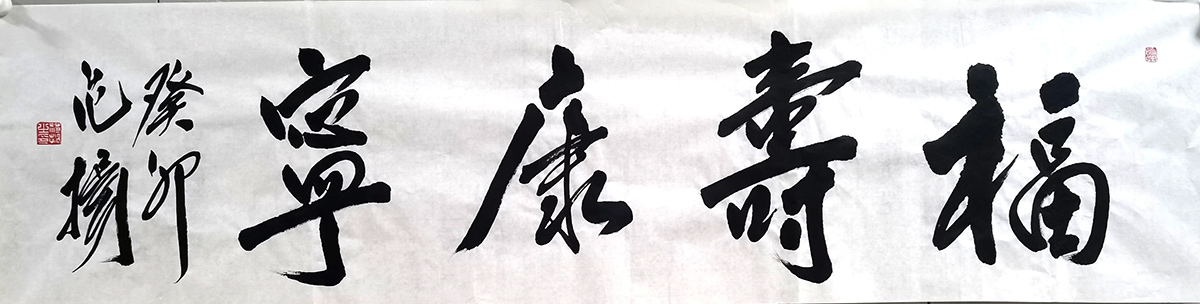 福壽康寧
癸卯
范